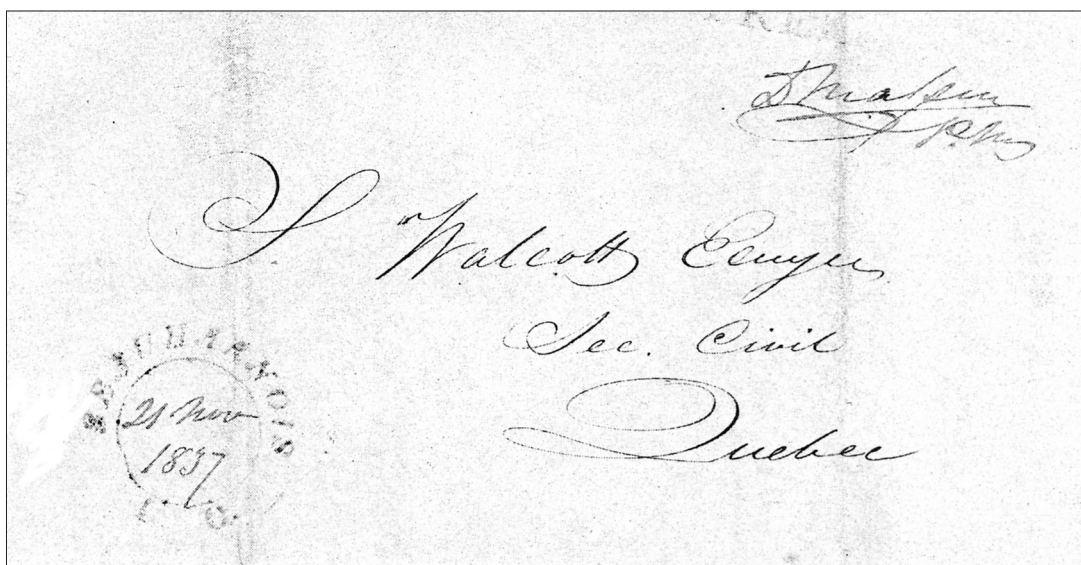 P.M.
S. Walcott Ecuyer
Sec. Civil
Quebec
BEAUHARNOIS
21 Nov
1837
L.C.